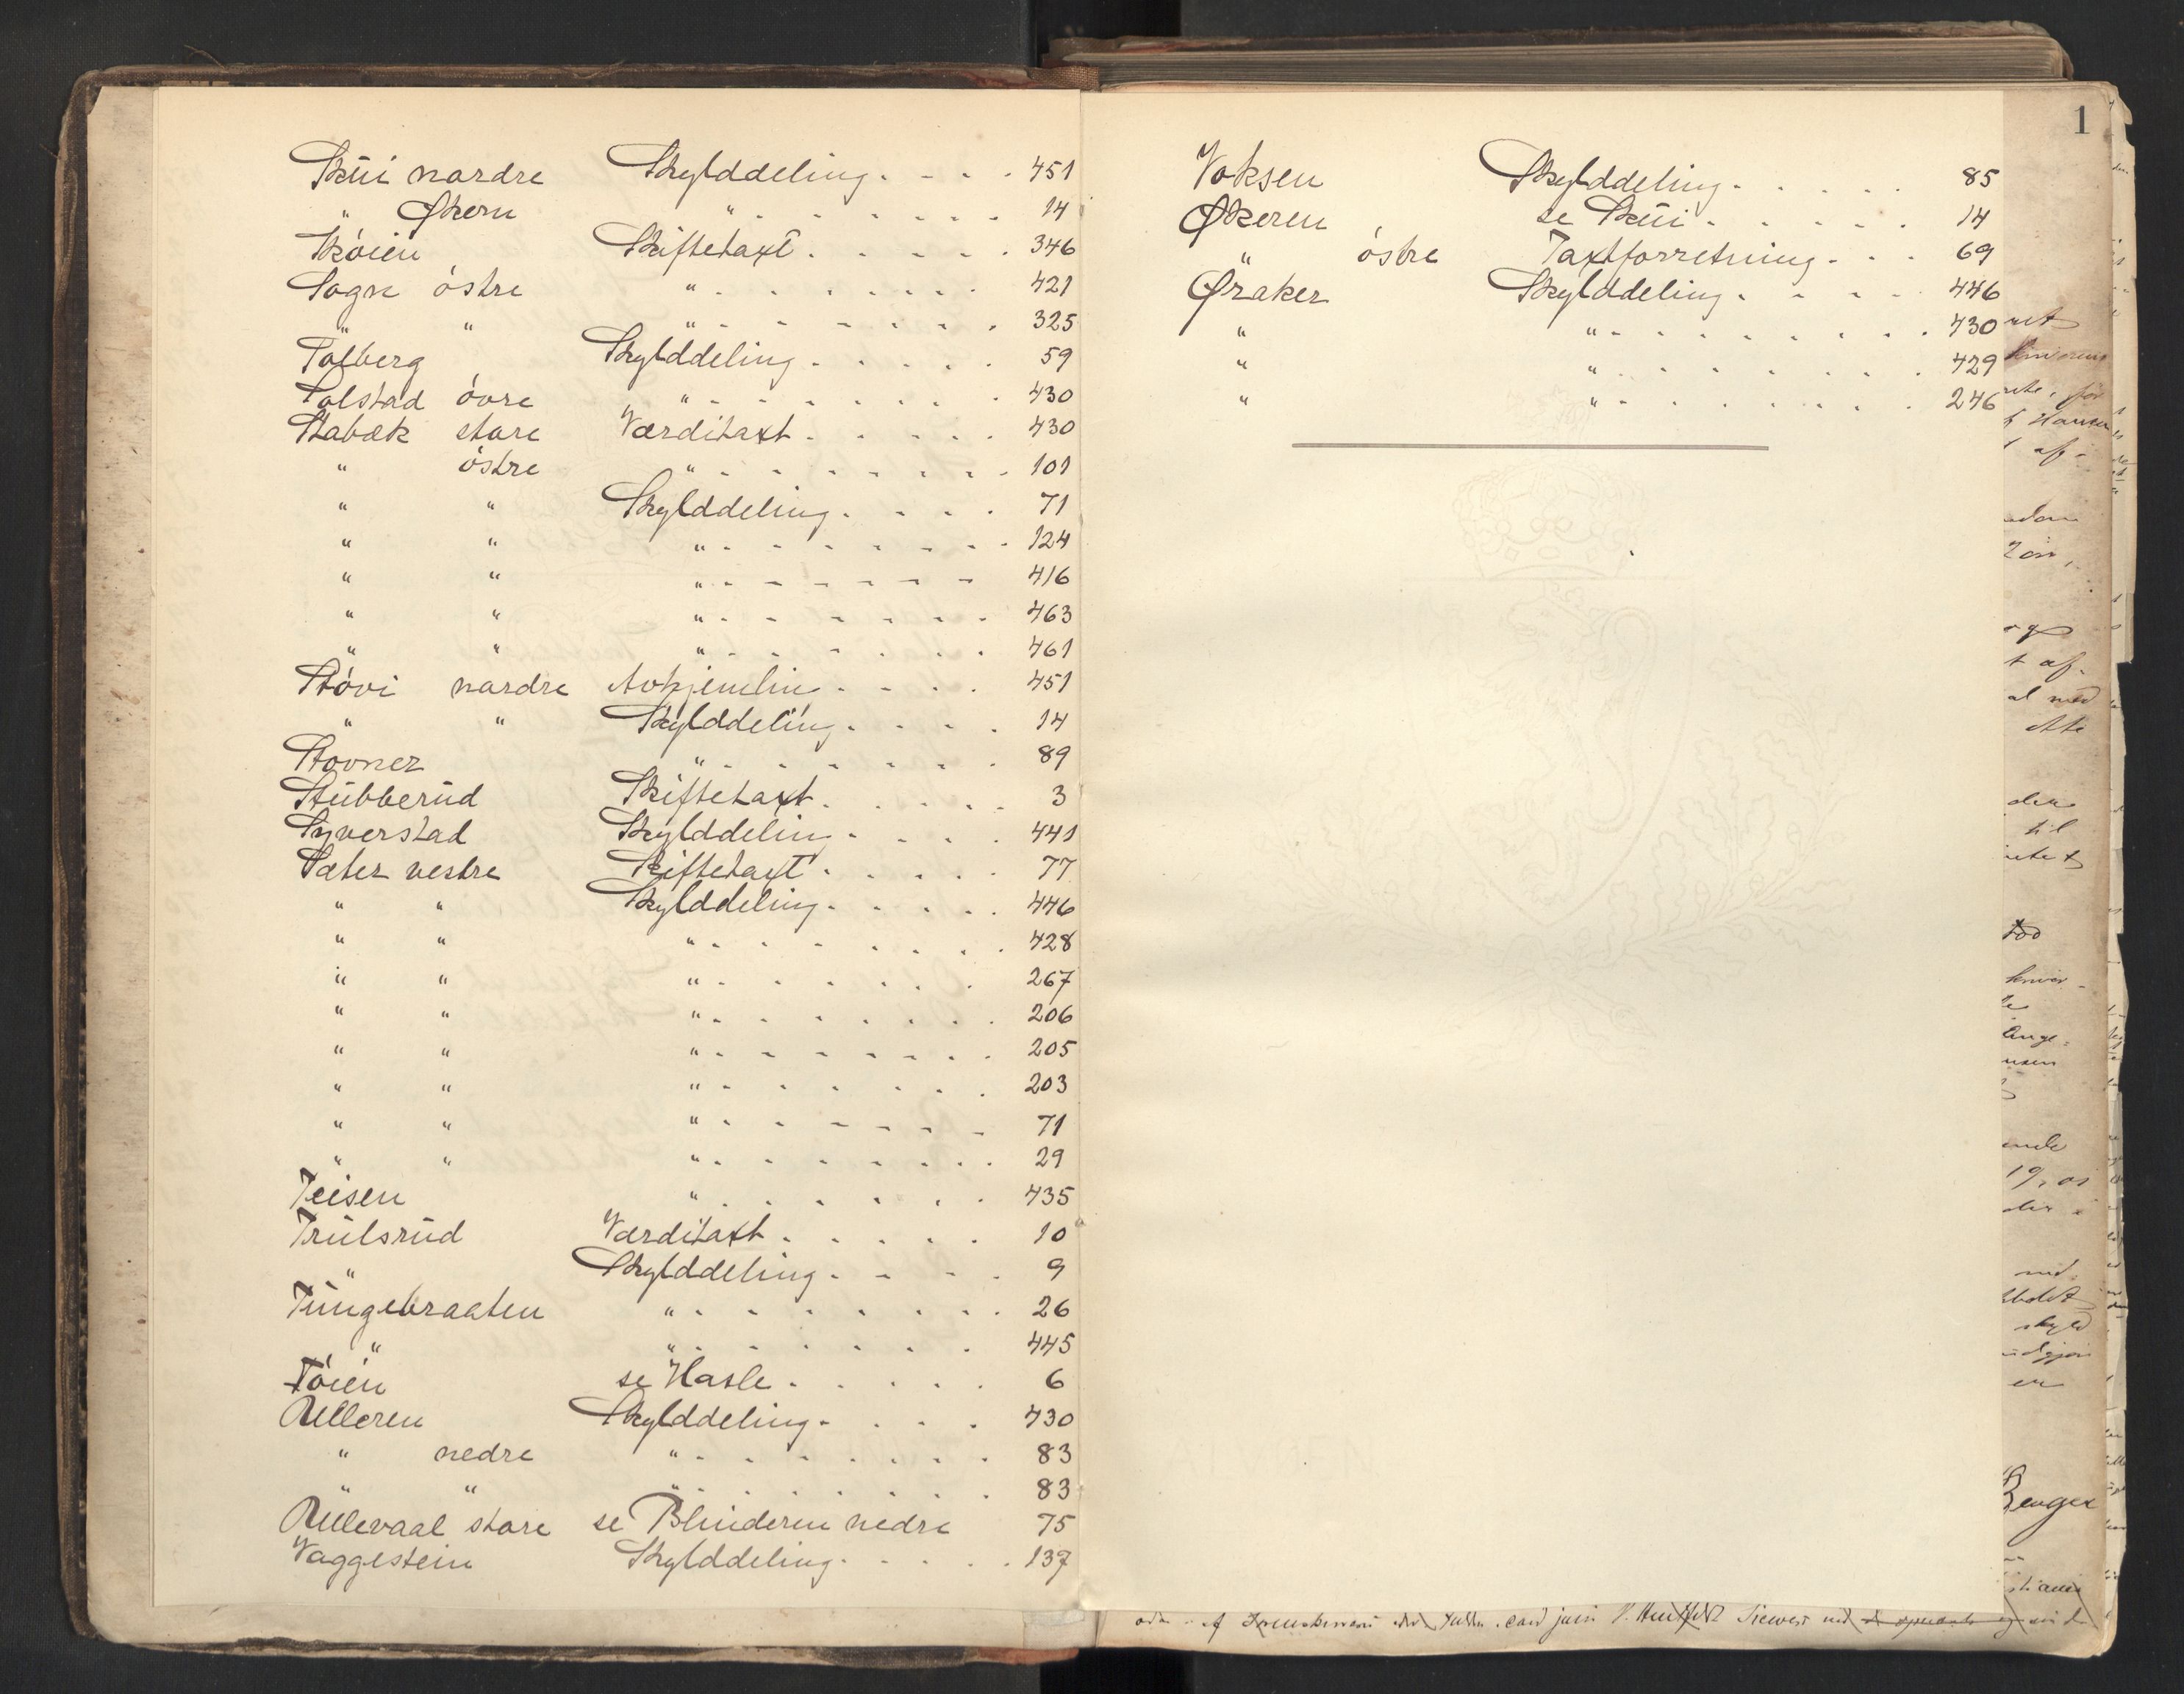 Skui nordre Skylddeling. - - . 451
" Økern " - - - - - - - 14
Skøien Skiftetaxt. . . . . . 346
Sogn østre " . . . . . . . 421
" " " - - - - - - - 325
Solberg Skylddeling. . . . . . 59
Solstad øvre " - - - - - - - 430
Stabæk store Værditaxt. . . . . . 430
" østre " - - - - - - - 101
" " Skylddeling. . . . . 71
" " " - - - - - - - 124
" " " - - - - - - - 416
" " " - - - - - - - 463
" " " - - - - - - - 461
Støvi nordre . . . . 451
" " Skylddeling. . . . . 14
Stovner " - - - - - - - 89
Stubberud Skiftetaxt. . . . . . 3
Syverstad Skylddelin . . . . . 441
Sæter vestre Skiftetaxt. . . . . . 77
" " Skylddeling. . . . . . 446
" " " . . . . . . . 428
" " " . . . . . . . 267
" " " . . . . . . . 206
" " " . . . . . . . 205
" " " . . . . . . . 203
" " " . . . . . . . 71
" " " . . . . . . . 29
Teisen " . . . . . . . 435
Trulsrud Værditaxt. . . . . . 10
" Skylddeling. - - - . 9
Tungebraaten " . . . . . . . 26
" " . . . . . . . 445
Tøien se Hasle. . . . . . 6
Ulleren Skylddeling. . . . . 430
" nedre " . . . . . . . 83
" " " . . . . . . . 83
Ullevaal store se Blinderen nedre 75
Vaggestein Skylddeling. . . . . . 137
1
Voksen Skylddeling. . . . . . 85
Økeren se Skui. . . . . . 14
" østre Taxtforretning. . . . 69
Øraker Skylddeling. . . . . 446
" " . . . . . . . . 430
" " . . . . . . . . 429
" " . . . . . . . . 246